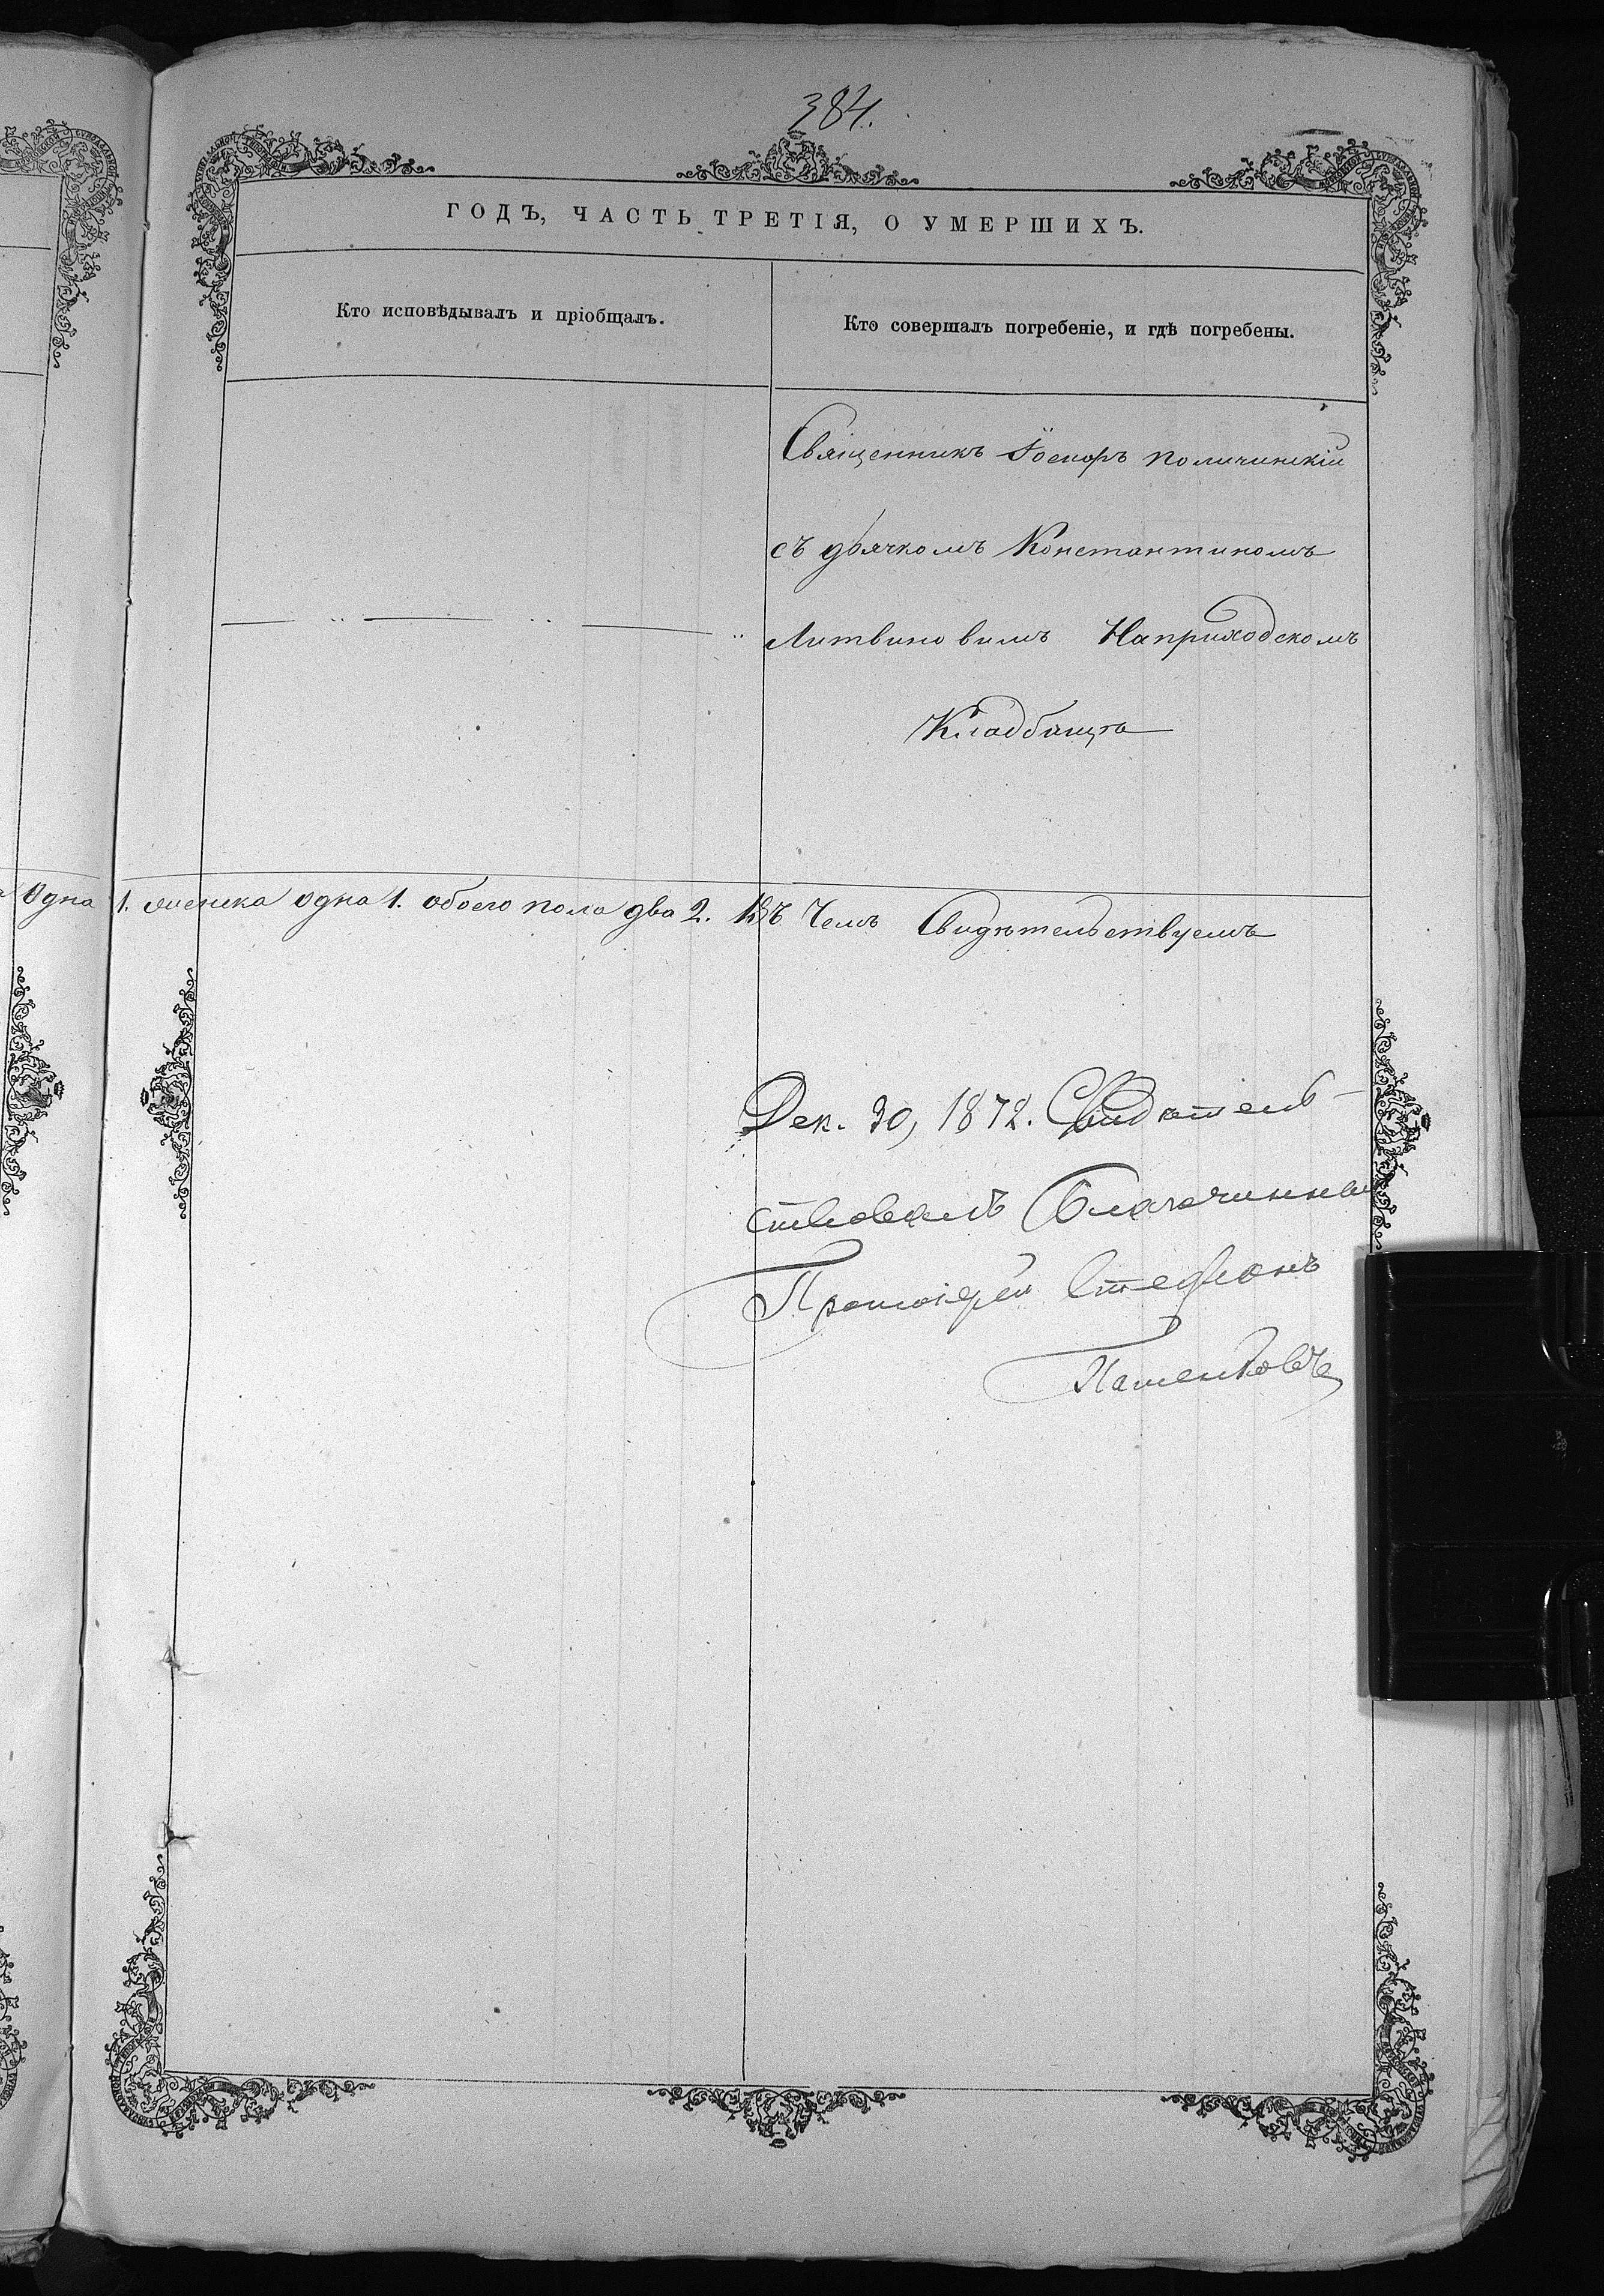 384.
ГОДЪ, ЧАСТЬ ТРЕТІЯ, О УМЕРШИХЪ.
Кто исповѣдывалъ и пріобщалъ.
Кто совершалъ погребеніе, и гдѣ погребены.
Священникъ
съ дьячкомъ Константиномъ
Литвиновимъ Наприходскомъ
Кладбищѣ
Одна 1. женска одна 1. обоего пола два 2. Въ Чемъ Свидѣтельствуемъ
Дек. 30, 1872. Свидѣтель-
ствовалъ Благочинный
Протоіерей Стефанъ